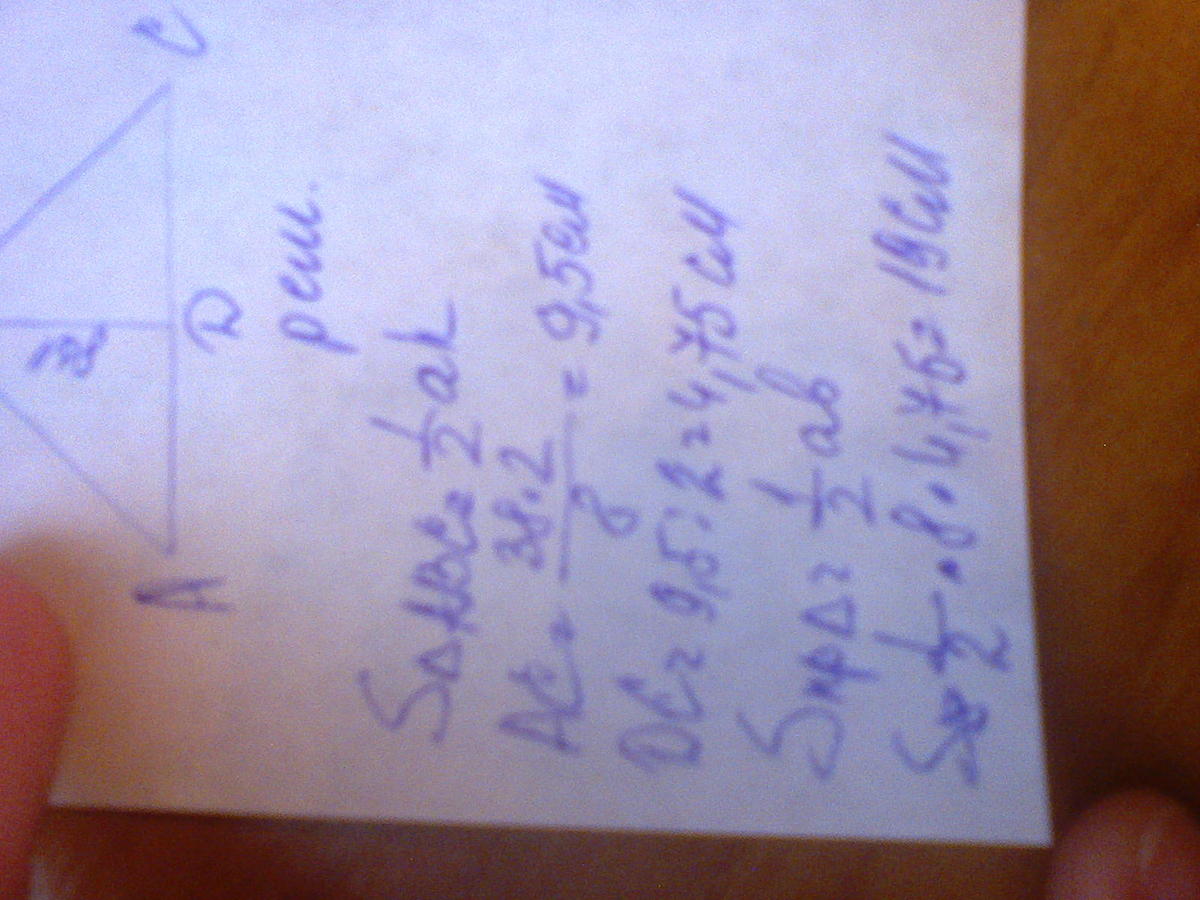 C
D
A
реш.
S△ABC = 1/2 ah
AC = 38·2/8 = 9,5 см
DC = 9,5:2 = 4,75 см
Sпр△ = 1/2 ab
S = 1/2 · 8 · 4,75 = 19 см